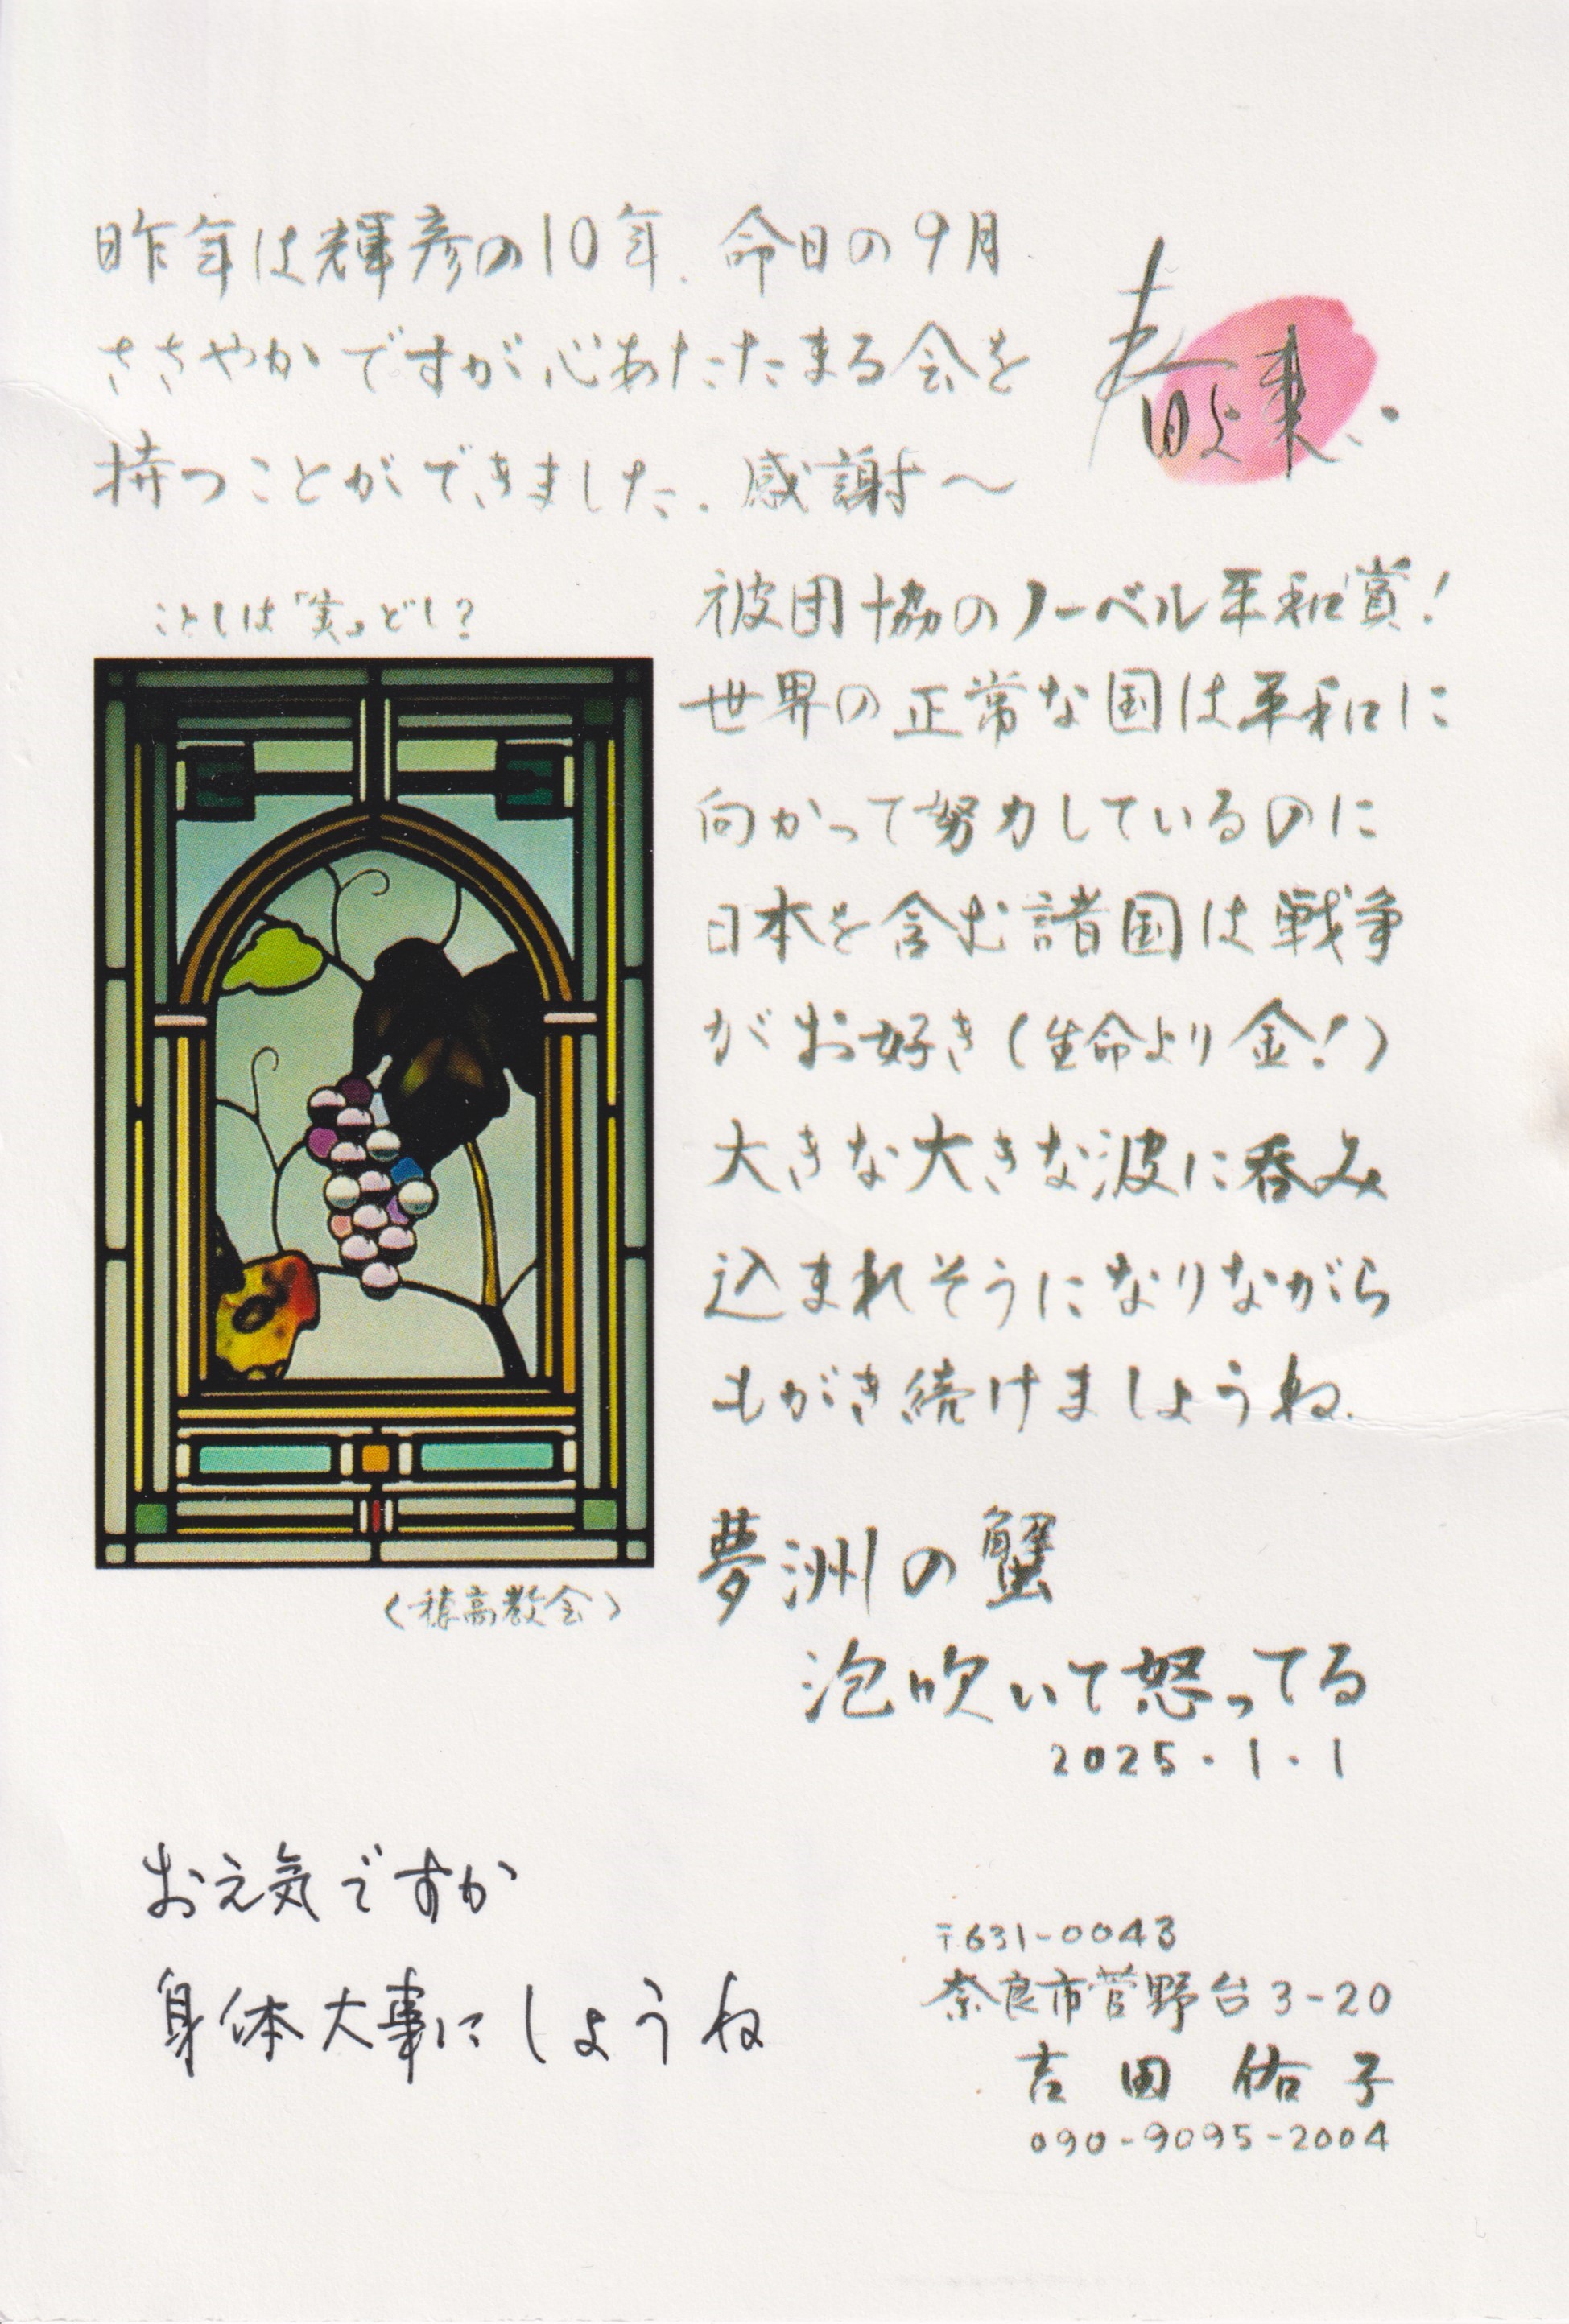 昨年は輝彦の10年.命日の9月
ささやかですが心あたたまる会を
持つことができました.感謝〜
春
ことしは「実」どし?
被団協のノーベル平和賞!
世界の正常な国は平和に
向かって努力しているのに
日本を含む諸国は戦争
がお好き(生命より金!)
大きな大きな波に呑み
込まれそうになりながら
もがき続けましょうね.
(穂高教会)
夢洲の蟹
泡吹いて怒ってる
2025・1・1
お元気ですか
身体大事にしょうね
〒631-0043
奈良市菅野台3-20
吉田佑子
090-9095-2004